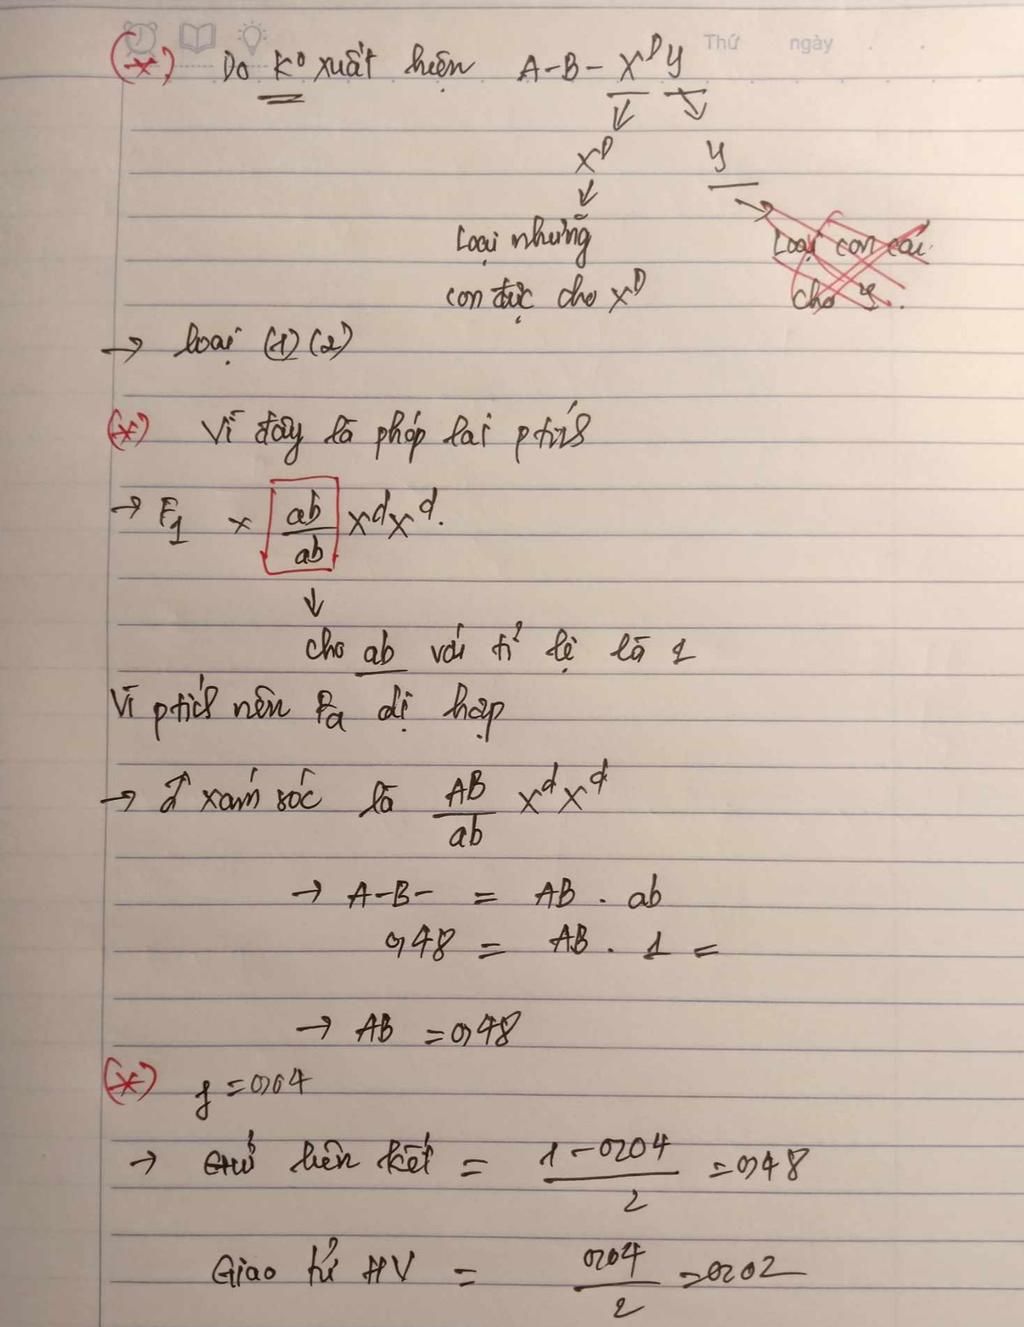 Thứ ngày
(*) Do K° xuất hiện A-B- XᴰY
Xᴰ Y
Loại những Loại con cái
con đực cho Xᴰ cho Y.
→ loại (1) (2)
(*) Vì đây là phép lai ptích
→ F₁ × ab/ab XᵈXᵈ.
cho ab với tỉ lệ là 1
Vì ptích nên Pa dị hợp
→ ♂ xám sóc là AB/ab XᵈXᵈ
→ A-B- = AB . ab
0,48 = AB . 1 =
→ AB = 0,48
(*) f = 0,04
→ liên kết = (1 - 0,04)/2 = 0,48
Giao tử HV = 0,04/2 = 0,02